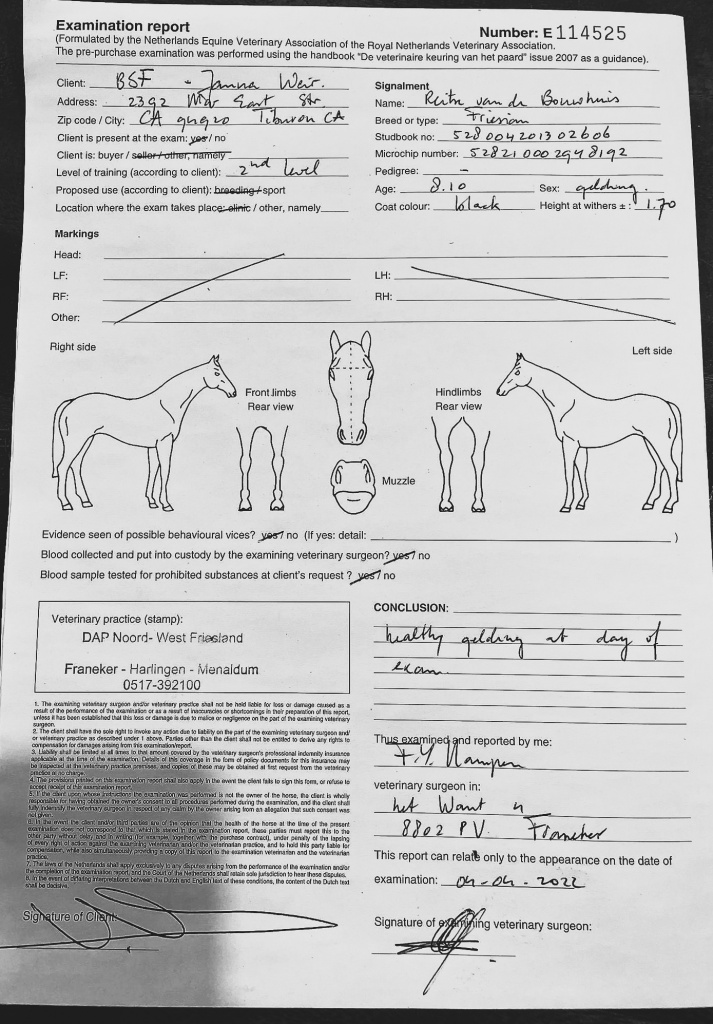 Examination report
Number: E 114525
(Formulated by the Netherlands Equine Veterinary Association of the Royal Netherlands Veterinary Association.
The pre-purchase examination was performed using the handbook "De veterinaire keuring van het paard" issue 2007 as a guidance).
Client: BSF - Janna Weir.
Address: 2392 Mar East Str.
Zip code / City: CA 94920 Tiburon CA
Client is present at the exam: yes / no
Client is: buyer / seller / other, namely
Level of training (according to client): 2nd level
Proposed use (according to client): breeding / sport
Location where the exam takes place: clinic / other, namely
Signalment
Name: Reitse van de Bouwhuis
Breed or type: Friesian
Studbook no: 528004201302606
Microchip number: 528210002948192
Pedigree: -
Age: 8.10 Sex: gelding.
Coat colour: black Height at withers ± : 1.70
Markings
Head:
LF: LH:
RF: RH:
Other:
Right side
Left side
Front limbs
Rear view
Hindlimbs
Rear view
Muzzle
Evidence seen of possible behavioural vices? yes / no (If yes: detail: )
Blood collected and put into custody by the examining veterinary surgeon? yes / no
Blood sample tested for prohibited substances at client's request ? yes / no
Veterinary practice (stamp):
DAP Noord- West Friesland
Franeker - Harlingen - Menaldum
0517-392100
1. The examining veterinary surgeon and/or veterinary practice shall not be held liable for loss or damage caused as a
result of the performance of the examination or as a result of inaccuracies or shortcomings in their preparation of this report,
unless it has been established that this loss or damage is due to malice or negligence on the part of the examining veterinary
surgeon.
2. The client shall have the sole right to invoke any action due to liability on the part of the examining veterinary surgeon and/
or veterinary practice as described under 1 above. Parties other than the client shall not be entitled to derive any rights to
compensation for damages arising from this examination/report.
3. Liability shall be limited at all times to that amount covered by the veterinary surgeon's professional indemnity insurance
applicable at the time of the examination. Details of this coverage in the form of policy documents for this insurance may
be inspected at the veterinary practice premises, and copies of these may be obtained at first request from the veterinary
practice at no charge.
4. The provisions printed on this examination report shall also apply in the event the client fails to sign this form, or refuse to
accept receipt of this examination report.
5. If the client upon whose instructions the examination was performed is not the owner of the horse, the client is wholly
responsible for having obtained the owner's consent to all procedures performed during the examination, and the client shall
fully indemnify the veterinary surgeon in respect of any claim by the owner arising from an allegation that such consent was
not given.
6. In the event the client and/or third parties are of the opinion that the health of the horse at the time of the present
examination does not correspond to that which is stated in the examination report, these parties must report this to the
other party without delay, and in writing (for example, together with the purchase contract), under penalty of the lapsing
of every right of action against the examining veterinarian and/or the veterinarian practice, and to hold this party liable for
compensation, while also simultaneously providing a copy of this report to the examination veterinarian and the veterinarian
practice.
7. The laws of the Netherlands shall apply exclusively to any disputes arising from the performance of the examination and/or
the completion of the examination report, and the Court of the Netherlands shall retain sole jurisdiction to hear these disputes.
8. In the event of differing interpretations between the Dutch and English text of these conditions, the content of the Dutch text
shall be decisive.
Signature of Client:
CONCLUSION:
healthy gelding at day of
exam
Thus examined and reported by me:
veterinary surgeon in:
het Want
8802 PV. Franeker
This report can relate only to the appearance on the date of
examination: 04-04-2022
Signature of examining veterinary surgeon: